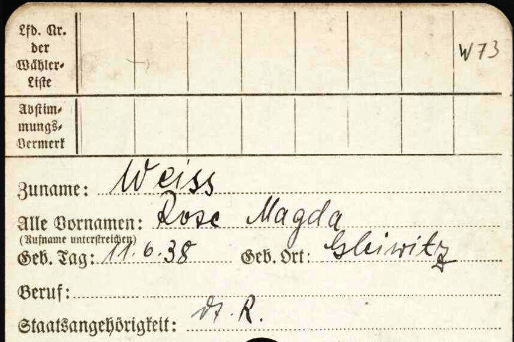 Lfd. Nr.
der
Wähler-
Liste
W73
Abstim-
mungs-
Vermerk
Zuname: Weiss
Alle Vornamen: Rose Magda
(Rufname unterstreichen)
Geb. Tag: 11.6.38 Geb. Ort: Gleiwitz
Beruf:
Staatsangehörigkeit: dt. R.